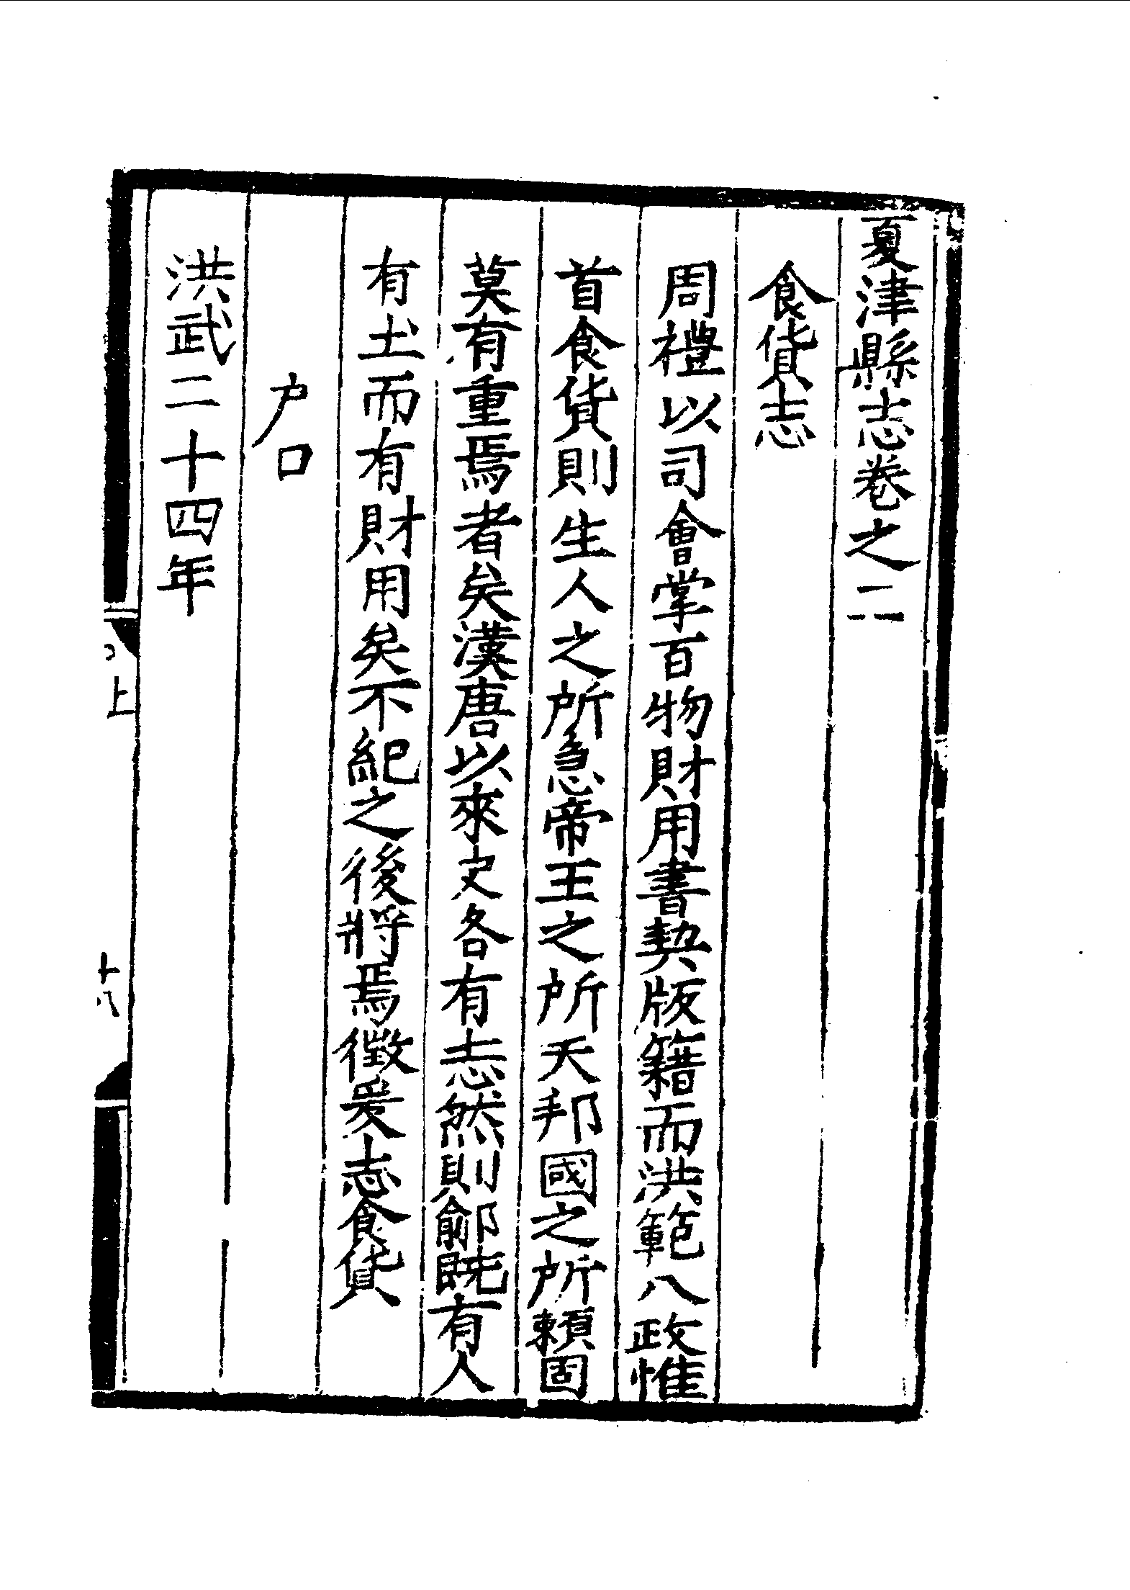 夏津縣志卷之二
食貨志
周禮以司會掌百物財用書契版籍而洪範八政惟
首食貨則生人之所急帝王之所天邦國之所頼固
莫有重焉者矣漢唐以來史各有志然則鄃既有人
有土而有財用矣不紀之後將焉徵爰志食貨
户口
洪武二十四年
上
十八